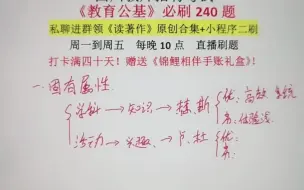 《教育公基》必刷 240 题
私聊进群领《读著作》原创合集+小程序二刷
周一到周五 每晚 10 点 直播刷题
打卡满四十天！赠送《锦鲤相伴手账礼盒》！
一.固有属性
学科→知识→赫、斯 优：高效、系统
劣：体验浅
活动→兴趣→卢、杜 优：
劣：